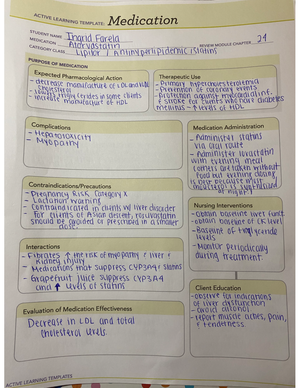 ACTIVE LEARNING TEMPLATE: Medication
STUDENT NAME Ingrid Farela
MEDICATION Atorvastatin
REVIEW MODULE CHAPTER 24
CATEGORY CLASS Lipitor / Antihyperlipidemic (statins)
PURPOSE OF MEDICATION
Expected Pharmacological Action
- decrease manufacture of LDL and VLDL
cholesterol
- lowers triglycerides in some clients
- increase manufacture of HDL
Therapeutic Use
- Primary hypercholesterolemia
- Prevention of coronary events
- Protection against myocardial inf.
& stroke for clients who have diabetes
mellitus - ↑ levels of HDL
Complications
- Hepatotoxicity
- Myopathy
Medication Administration
- Administer statins
via oral route
- Administer lovastatin
with evening meal
Contraindications/Precautions
- Pregnancy Risk Category X
- Lactation warning
- Contraindicated in clients w/ liver disorder
- For clients of Asian descent, rosuvastatin
should be avoided or prescribed in a smaller
dose
Nursing Interventions
- Obtain baseline liver funct.
- Obtain baseline of CK level
- Baseline of triglyceride
levels
- Monitor periodically
during treatment
Interactions
- Fibrates ↑ the risk of myopathy / liver +
kidney injury
- Medications that suppress CYP3A4 ↑ statins
- Grapefruit juice suppress CYP3A4
↑ levels of statins
Client Education
- observe for indications
of liver dysfunction
- avoid alcohol
- report muscle aches, pain,
& tenderness
Evaluation of Medication Effectiveness
Decrease in LDL and total
cholesterol levels.
ACTIVE LEARNING TEMPLATES